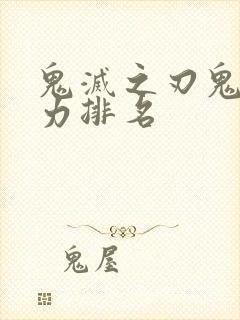 鬼滅之刃鬼
力排名
鬼屋